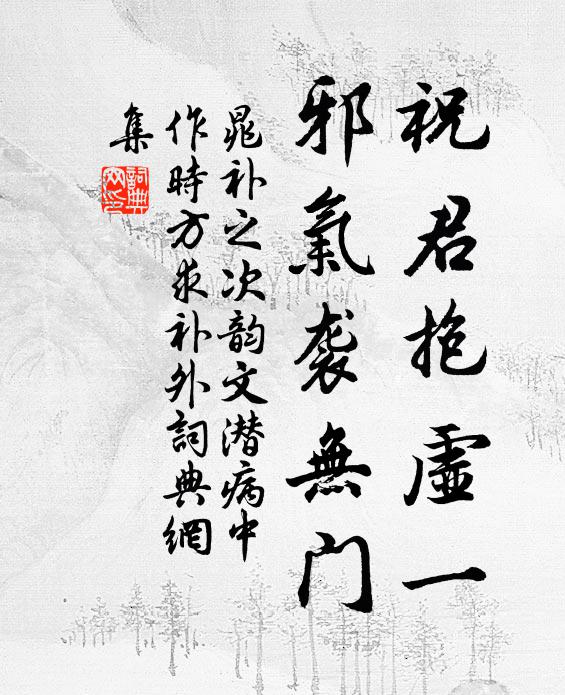 祝君抱虛一
邪氣襲無门
晁补之次韵文潜病中
作時方求补外詞典網
集
詞典網